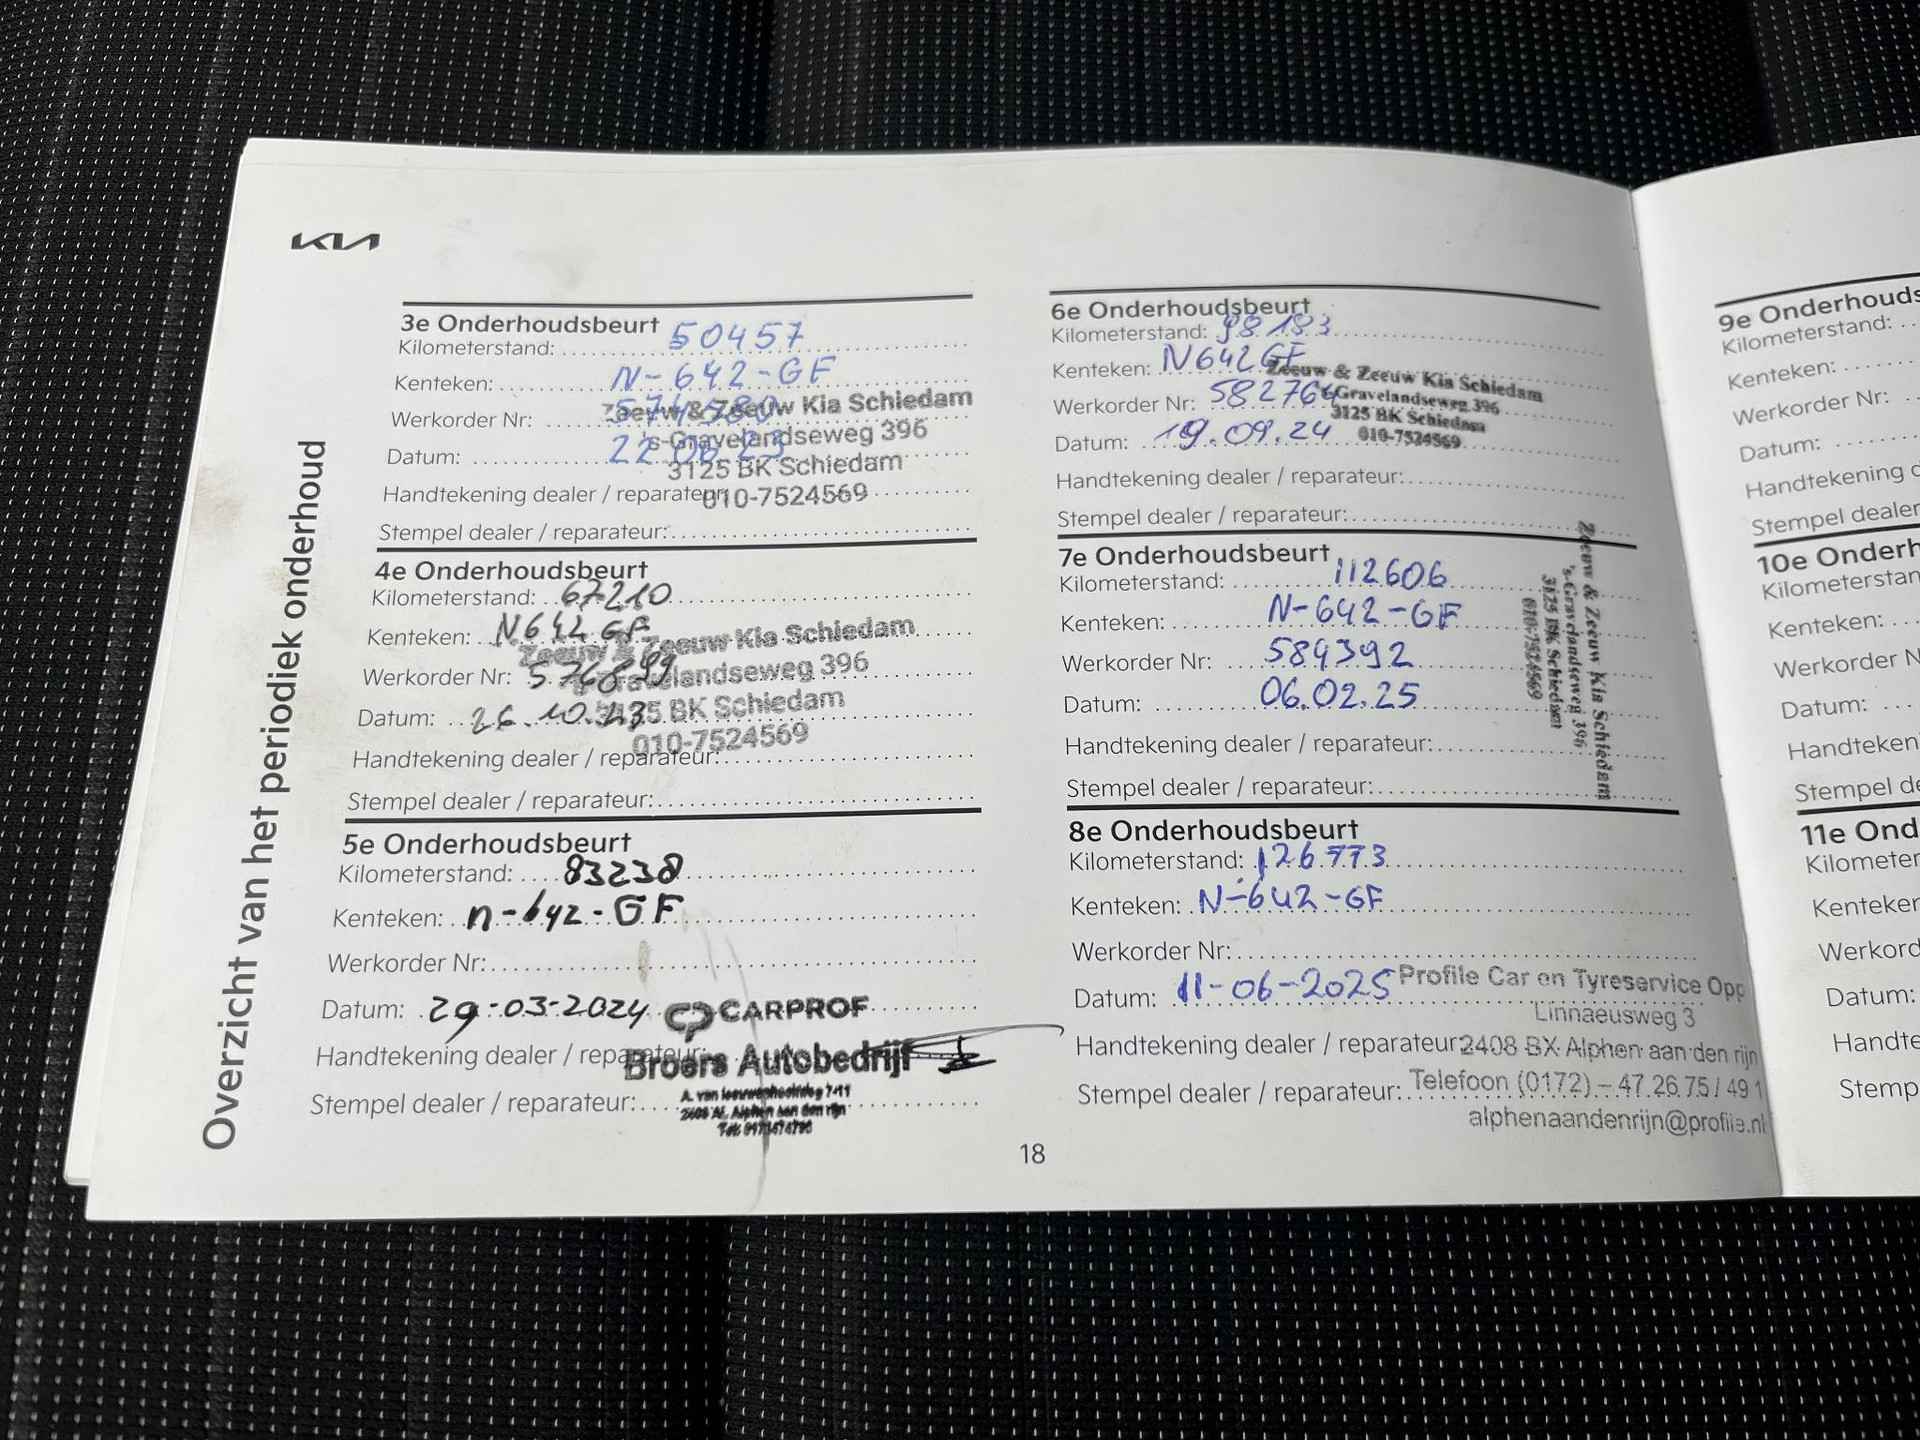 KIA
Overzicht van het periodiek onderhoud
3e Onderhoudsbeurt
Kilometerstand: 50457
Kenteken: N-642-GF
Werkorder Nr: 574580
Datum: 22.06.23
Handtekening dealer / reparateur:
Stempel dealer / reparateur:
Zeeuw & Zeeuw Kia Schiedam
's-Gravelandseweg 396
3125 BK Schiedam
010-7524569
4e Onderhoudsbeurt
Kilometerstand: 67210
Kenteken: N642GF
Werkorder Nr: 576899
Datum: 26.10.23
Handtekening dealer / reparateur:
Stempel dealer / reparateur:
Zeeuw & Zeeuw Kia Schiedam
's-Gravelandseweg 396
3125 BK Schiedam
010-7524569
5e Onderhoudsbeurt
Kilometerstand: 83238
Kenteken: n-642-GF
Werkorder Nr:
Datum: 29-03-2024
Handtekening dealer / reparateur:
Stempel dealer / reparateur:
CARPROF
Broers Autobedrijf
Alphen aan den rijn
6e Onderhoudsbeurt
Kilometerstand: 98183
Kenteken: N642GF
Werkorder Nr: 582764
Datum: 19.09.24
Handtekening dealer / reparateur:
Stempel dealer / reparateur:
Zeeuw & Zeeuw Kia Schiedam
's-Gravelandseweg 396
3125 BK Schiedam
010-7524569
7e Onderhoudsbeurt
Kilometerstand: 112606
Kenteken: N-642-GF
Werkorder Nr: 584392
Datum: 06.02.25
Handtekening dealer / reparateur:
Stempel dealer / reparateur:
Zeeuw & Zeeuw Kia Schiedam
's-Gravelandseweg 396
3125 BK Schiedam
010-7524569
8e Onderhoudsbeurt
Kilometerstand: 126773
Kenteken: N-642-GF
Werkorder Nr:
Datum: 11-06-2025
Handtekening dealer / reparateur
Stempel dealer / reparateur:
Profile Car en Tyreservice Opp
Linnaeusweg 3
2408 BX Alphen aan den rijn
Telefoon (0172) - 47.26.75 / 49 1
alphenaandenrijn@profile.nl
18
9e Onderhouds
Kilometerstand:
Kenteken:
Werkorder Nr:
Datum:
Handtekening d
Stempel dealer
10e Onderh
Kilometerstan
Kenteken:
Werkorder N
Datum:
Handteken
Stempel de
11e Ond
Kilometer
Kenteker
Werkord
Datum:
Handte
Stemp